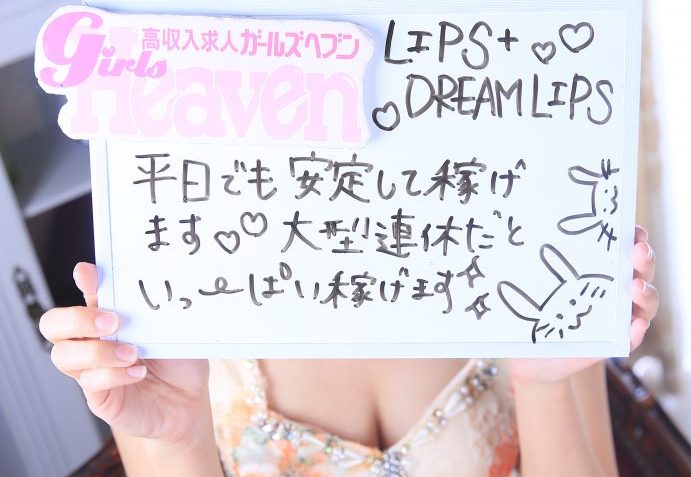 高収入求人ガールズヘブン
Girls Heaven
LIPS+♡♡
♡DREAMLIPS
平日でも安定して稼げ
ます♡♡大型連休だと
いっぱい稼げます☆☆